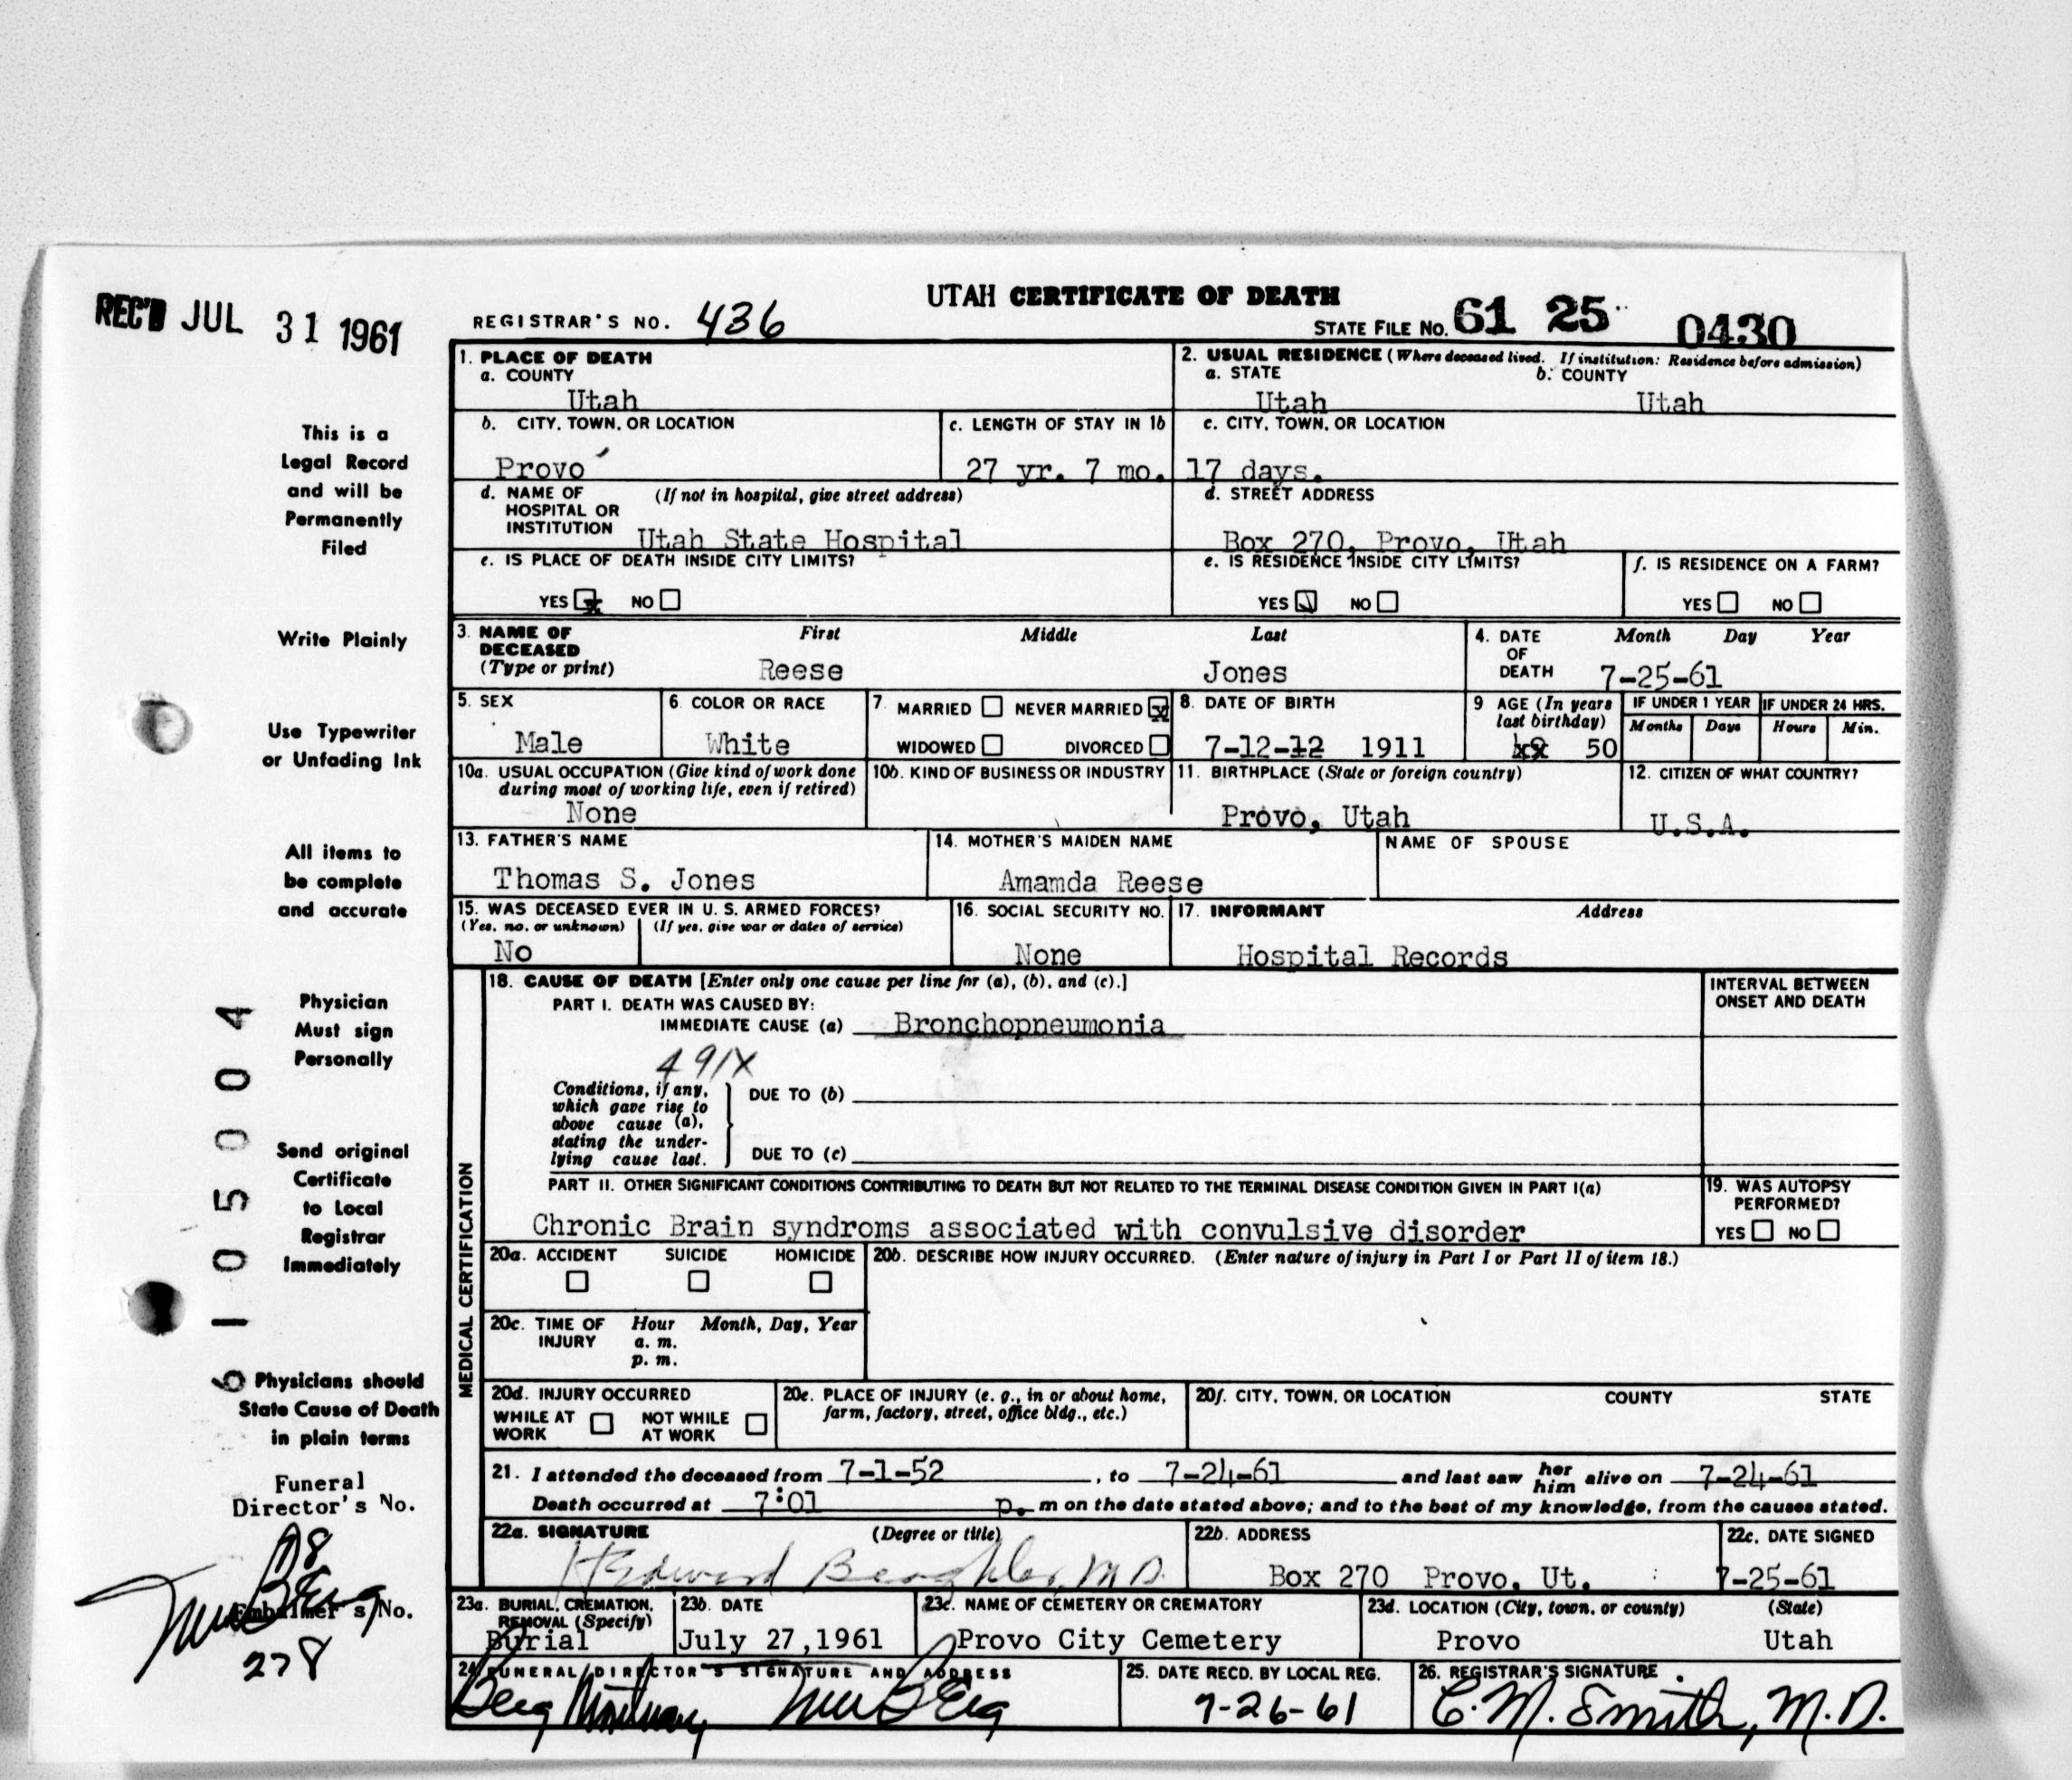 UTAH CERTIFICATE OF DEATH
REC'D JUL 31 1961
REGISTRAR'S NO. 436
STATE FILE NO. 61 25 0430
1. PLACE OF DEATH
a. COUNTY
Utah
2. USUAL RESIDENCE (Where deceased lived. If institution: Residence before admission)
a. STATE b. COUNTY
Utah Utah
b. CITY, TOWN, OR LOCATION
Provo
c. LENGTH OF STAY IN 1b
27 yr. 7 mo. 17 days.
c. CITY, TOWN, OR LOCATION
d. NAME OF HOSPITAL OR INSTITUTION (If not in hospital, give street address)
Utah State Hospital
d. STREET ADDRESS
Box 270, Provo, Utah
e. IS PLACE OF DEATH INSIDE CITY LIMITS?
YES x NO
e. IS RESIDENCE INSIDE CITY LIMITS?
YES NO
f. IS RESIDENCE ON A FARM?
YES NO
3. NAME OF DECEASED (Type or print)
First Middle Last
Reese Jones
4. DATE OF DEATH
Month Day Year
7-25-61
5. SEX
Male
6. COLOR OR RACE
White
7. MARRIED NEVER MARRIED x
WIDOWED DIVORCED
8. DATE OF BIRTH
7-12-12 1911
9 AGE (In years last birthday)
50
IF UNDER 1 YEAR IF UNDER 24 HRS.
Months Days Hours Min.
10a. USUAL OCCUPATION (Give kind of work done during most of working life, even if retired)
None
10b. KIND OF BUSINESS OR INDUSTRY
11. BIRTHPLACE (State or foreign country)
Provo, Utah
12. CITIZEN OF WHAT COUNTRY?
U.S.A.
13. FATHER'S NAME
Thomas S. Jones
14. MOTHER'S MAIDEN NAME
Amamda Reese
NAME OF SPOUSE
15. WAS DECEASED EVER IN U. S. ARMED FORCES?
(Yes, no, or unknown) (If yes, give war or dates of service)
No
16. SOCIAL SECURITY NO.
None
17. INFORMANT Address
Hospital Records
MEDICAL CERTIFICATION
18. CAUSE OF DEATH [Enter only one cause per line for (a), (b), and (c).]
INTERVAL BETWEEN ONSET AND DEATH
PART I. DEATH WAS CAUSED BY:
IMMEDIATE CAUSE (a) Bronchopneumonia
491X
Conditions, if any, which gave rise to above cause (a), stating the underlying cause last.
DUE TO (b)
DUE TO (c)
PART II. OTHER SIGNIFICANT CONDITIONS CONTRIBUTING TO DEATH BUT NOT RELATED TO THE TERMINAL DISEASE CONDITION GIVEN IN PART I(a)
Chronic Brain syndroms associated with convulsive disorder
19. WAS AUTOPSY PERFORMED?
YES NO
20a. ACCIDENT SUICIDE HOMICIDE
20b. DESCRIBE HOW INJURY OCCURRED. (Enter nature of injury in Part I or Part II of item 18.)
20c. TIME OF INJURY Hour Month, Day, Year
a. m.
p. m.
20d. INJURY OCCURRED
WHILE AT WORK NOT WHILE AT WORK
20e. PLACE OF INJURY (e. g., in or about home, farm, factory, street, office bldg., etc.)
20f. CITY, TOWN, OR LOCATION COUNTY STATE
21. I attended the deceased from 7-1-52, to 7-24-61 and last saw her him alive on 7-24-61
Death occurred at 7:01 p. m on the date stated above; and to the best of my knowledge, from the causes stated.
22a. SIGNATURE (Degree or title)
H Edward Beaghler, M.D.
22b. ADDRESS
Box 270 Provo, Ut.
22c. DATE SIGNED
7-25-61
23a. BURIAL, CREMATION, REMOVAL (Specify)
Burial
23b. DATE
July 27, 1961
23c. NAME OF CEMETERY OR CREMATORY
Provo City Cemetery
23d. LOCATION (City, town, or county) (State)
Provo Utah
24 FUNERAL DIRECTOR'S SIGNATURE AND ADDRESS
Berg Mortuary
25. DATE RECD. BY LOCAL REG.
7-26-61
26. REGISTRAR'S SIGNATURE
C. M. Smith, M. D.
This is a
Legal Record
and will be
Permanently
Filed
Write Plainly
Use Typewriter
or Unfading Ink
All items to
be complete
and accurate
Physician
Must sign
Personally
Send original
Certificate
to Local
Registrar
Immediately
Physicians should
State Cause of Death
in plain terms
Funeral
Director's No.
Embalmer's No.
278
6105004